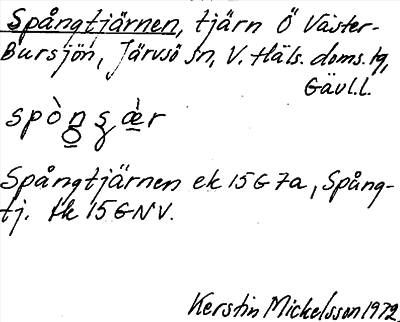 Spångtjärnen, tjärn Ö Väster-
Bursjön, Järvsö sn, V. Häls. doms. tg,
Gävl.l.
Spångtjärnen ek 15G7a, Spång-
tj. tk 15GNV.
Kerstin Mickelsson 1972.